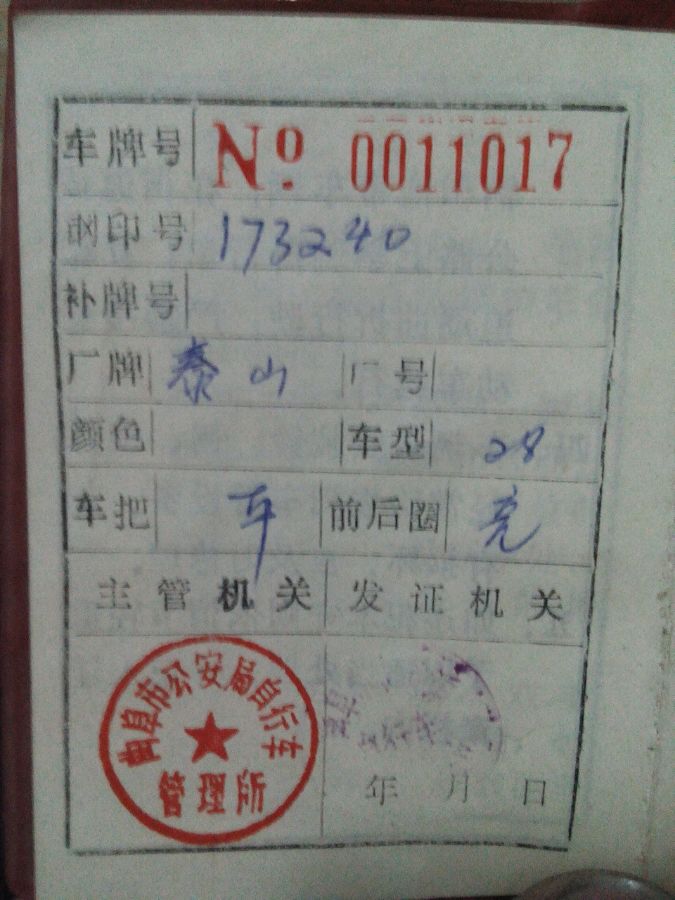 车牌号 No. 0011017
钢印号 173240
补牌号
厂牌 泰山 厂号
颜色 车型 28
车把 前后圈
主管机关 发证机关
曲阜市公安局自行车
管理所
年 月 日